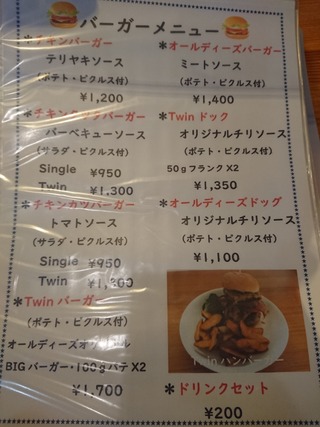 バーガーメニュー
＊チキンバーガー
テリヤキソース
(ポテト・ピクルス付)
¥1,200
＊チキンカツバーガー
バーベキューソース
(サラダ・ピクルス付)
Single ¥950
Twin ¥1,300
＊チキンカツバーガー
トマトソース
(サラダ・ピクルス付)
Single ¥950
Twin ¥1,300
＊Twin バーガー
(ポテト・ピクルス付)
オールディーズオリジナル
BIGバーガー・100gパテX2
¥1,700
＊オールディーズバーガー
ミートソース
(ポテト・ピクルス付)
¥1,400
＊Twin ドック
オリジナルチリソース
(ポテト・ピクルス付)
50gフランクX2
¥1,350
＊オールディーズドッグ
オリジナルチリソース
(ポテト・ピクルス付)
¥1,100
Twin ハンバーガー
＊ドリンクセット
¥200